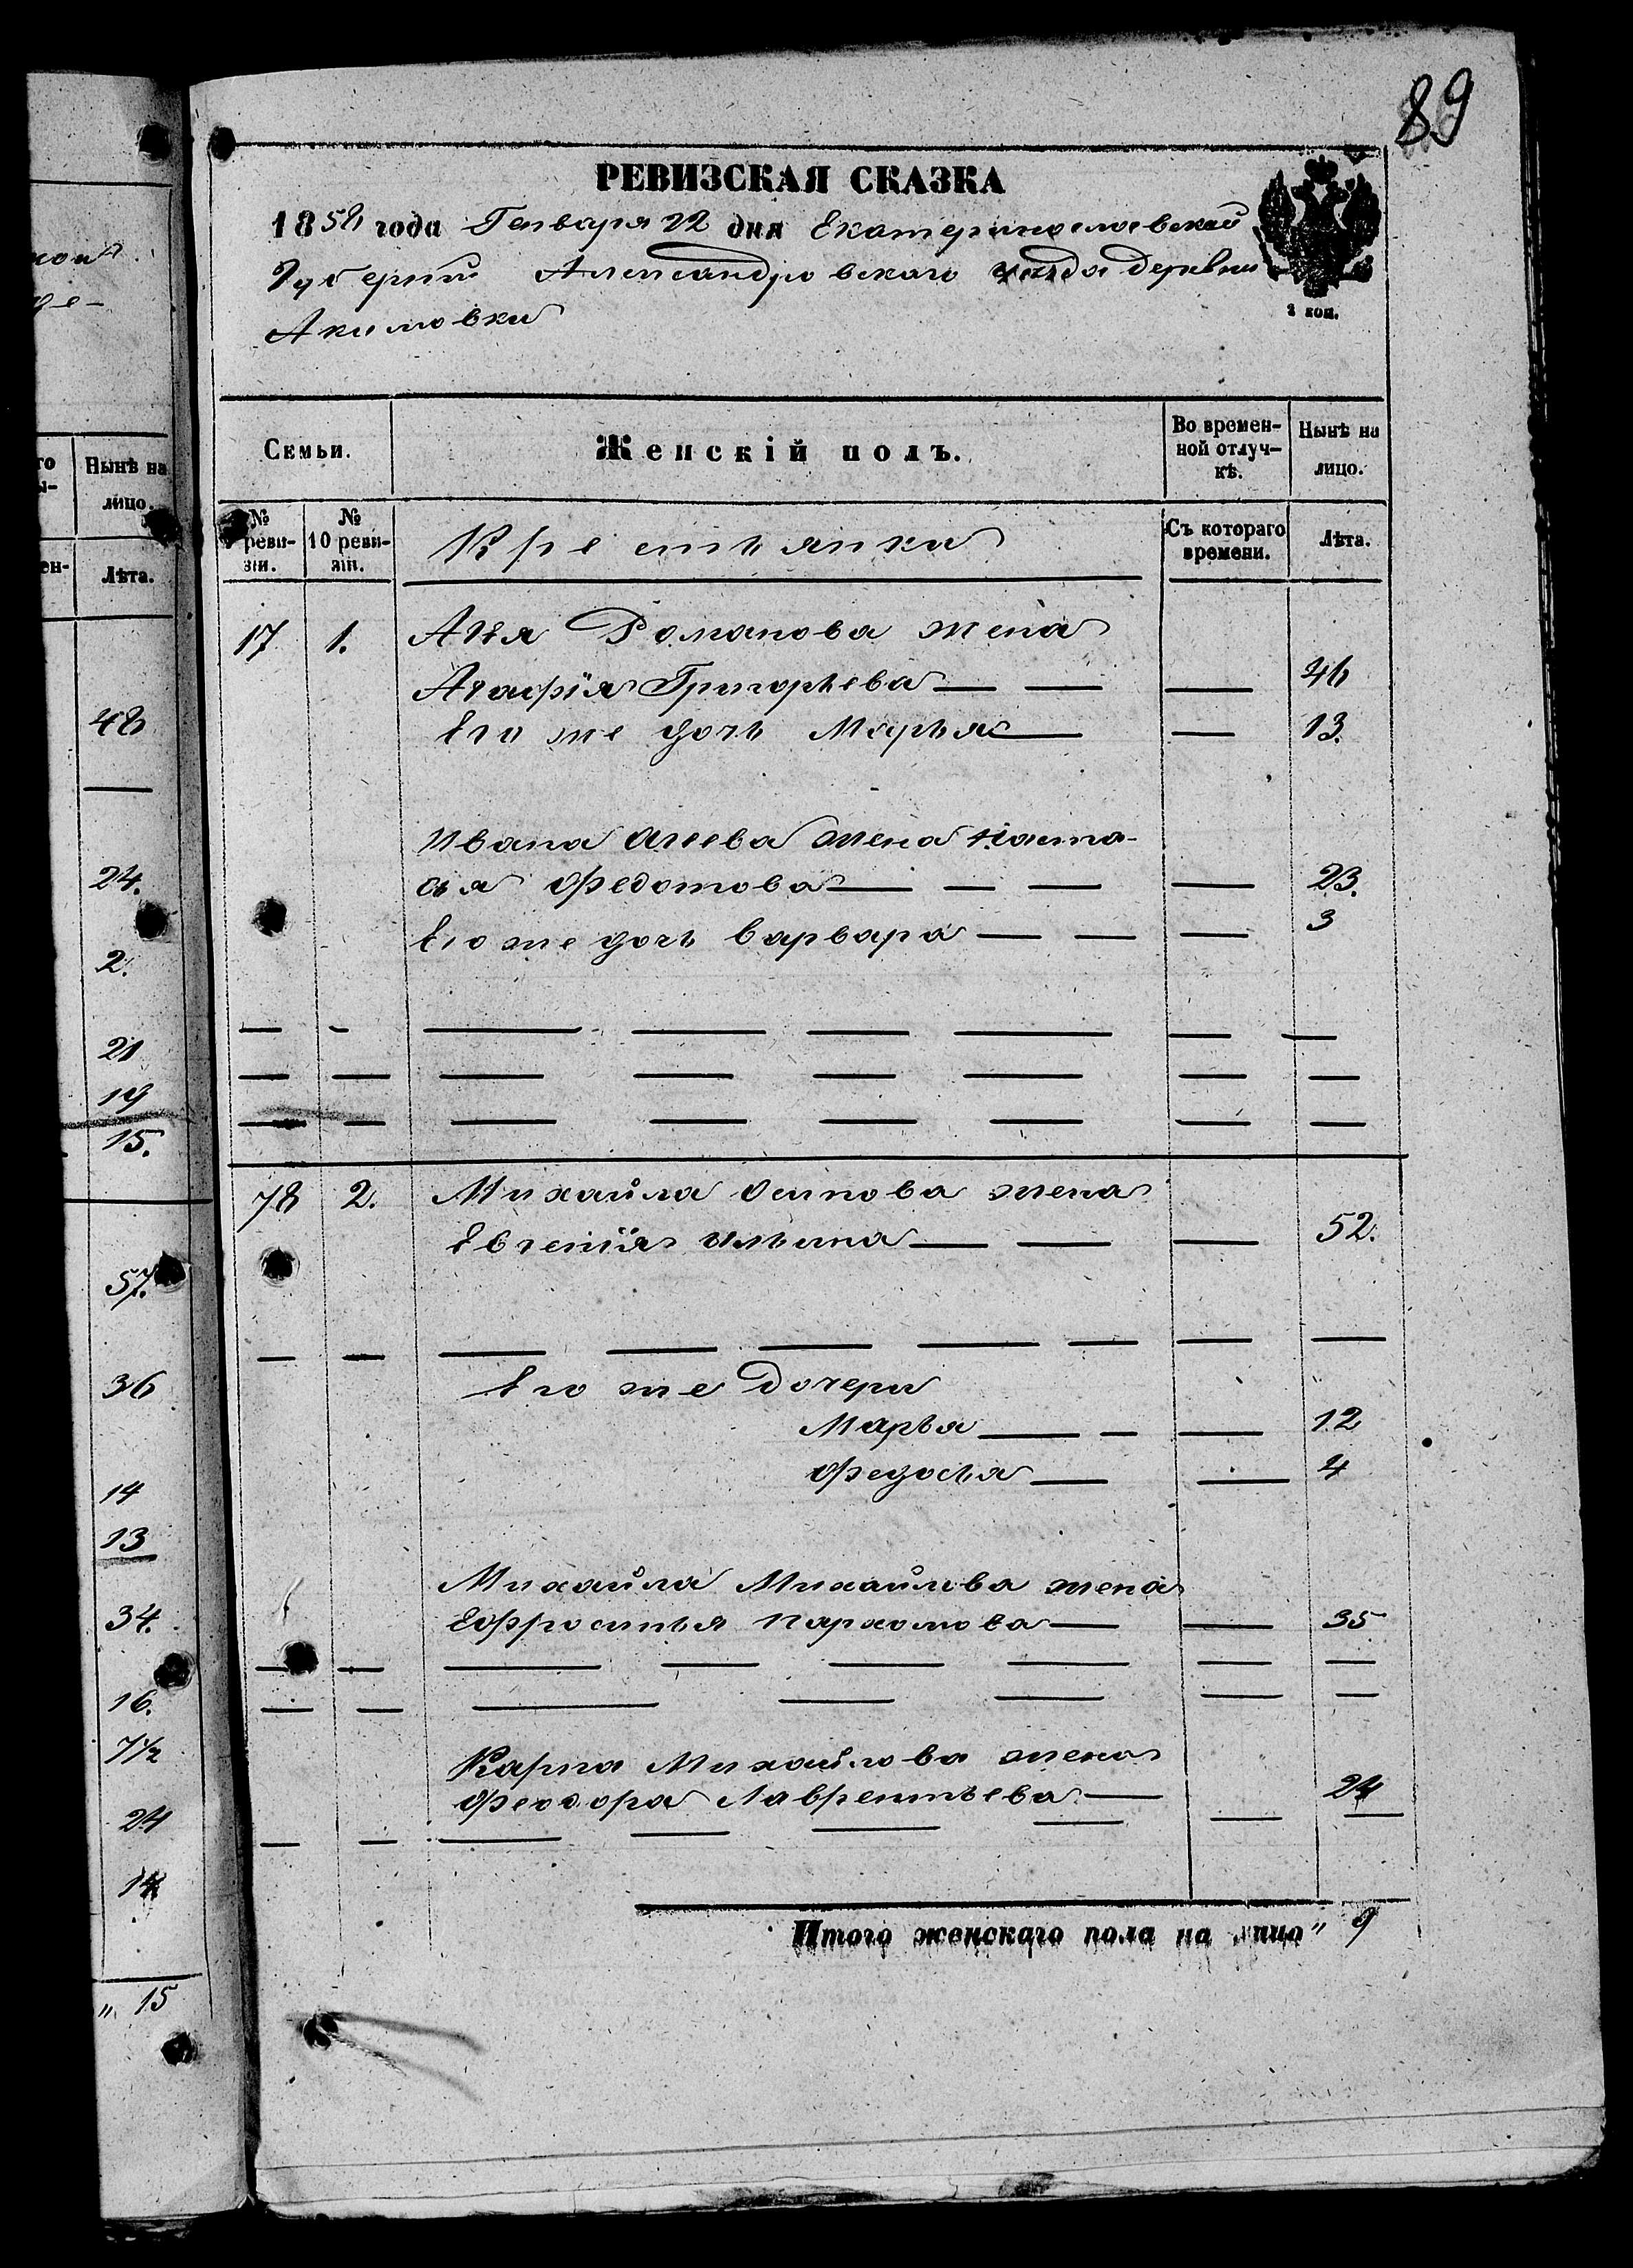 89
РЕВИЗСКАЯ СКАЗКА
1858 года Генваря 22 дня Екатеринославской
Губернии Александровскаго уезда деревни
Акимовки
2 коп.
Семьи.
Женскій полъ.
Во времен-
ной отлуч-
кѣ.
Нынѣ на
лицо.
№
реви-
зіи.
№
10 реви-
зіи.
Крестьянка
Съ котораго
времени.
Лѣта.
17 1. Агея Романова жена
Агафія Григорьева — — — 46
Его же дочь Марья — — 13.
Ивана Агеева жена Наста-
сья Федотова — — — — 23.
Его же дочь Варвара — — — 3
78 2. Михайла Осипова жена
Евгенія Ильина — — — 52.
Его же Дочери
Марья — — — 12
Федосья — — 4
Михайла Михайлова жена
Еффросинья Пархомова — — 35
Карпа Михайлова жена
Феодора Лаврентьева — — 24
Итого женскаго пола на лицо „ 9
Нынѣ на
лицо.
Лѣта.
48
24.
2.
21
19
15.
57.
36
14
13
34.
16.
7½
24
14
„ 15